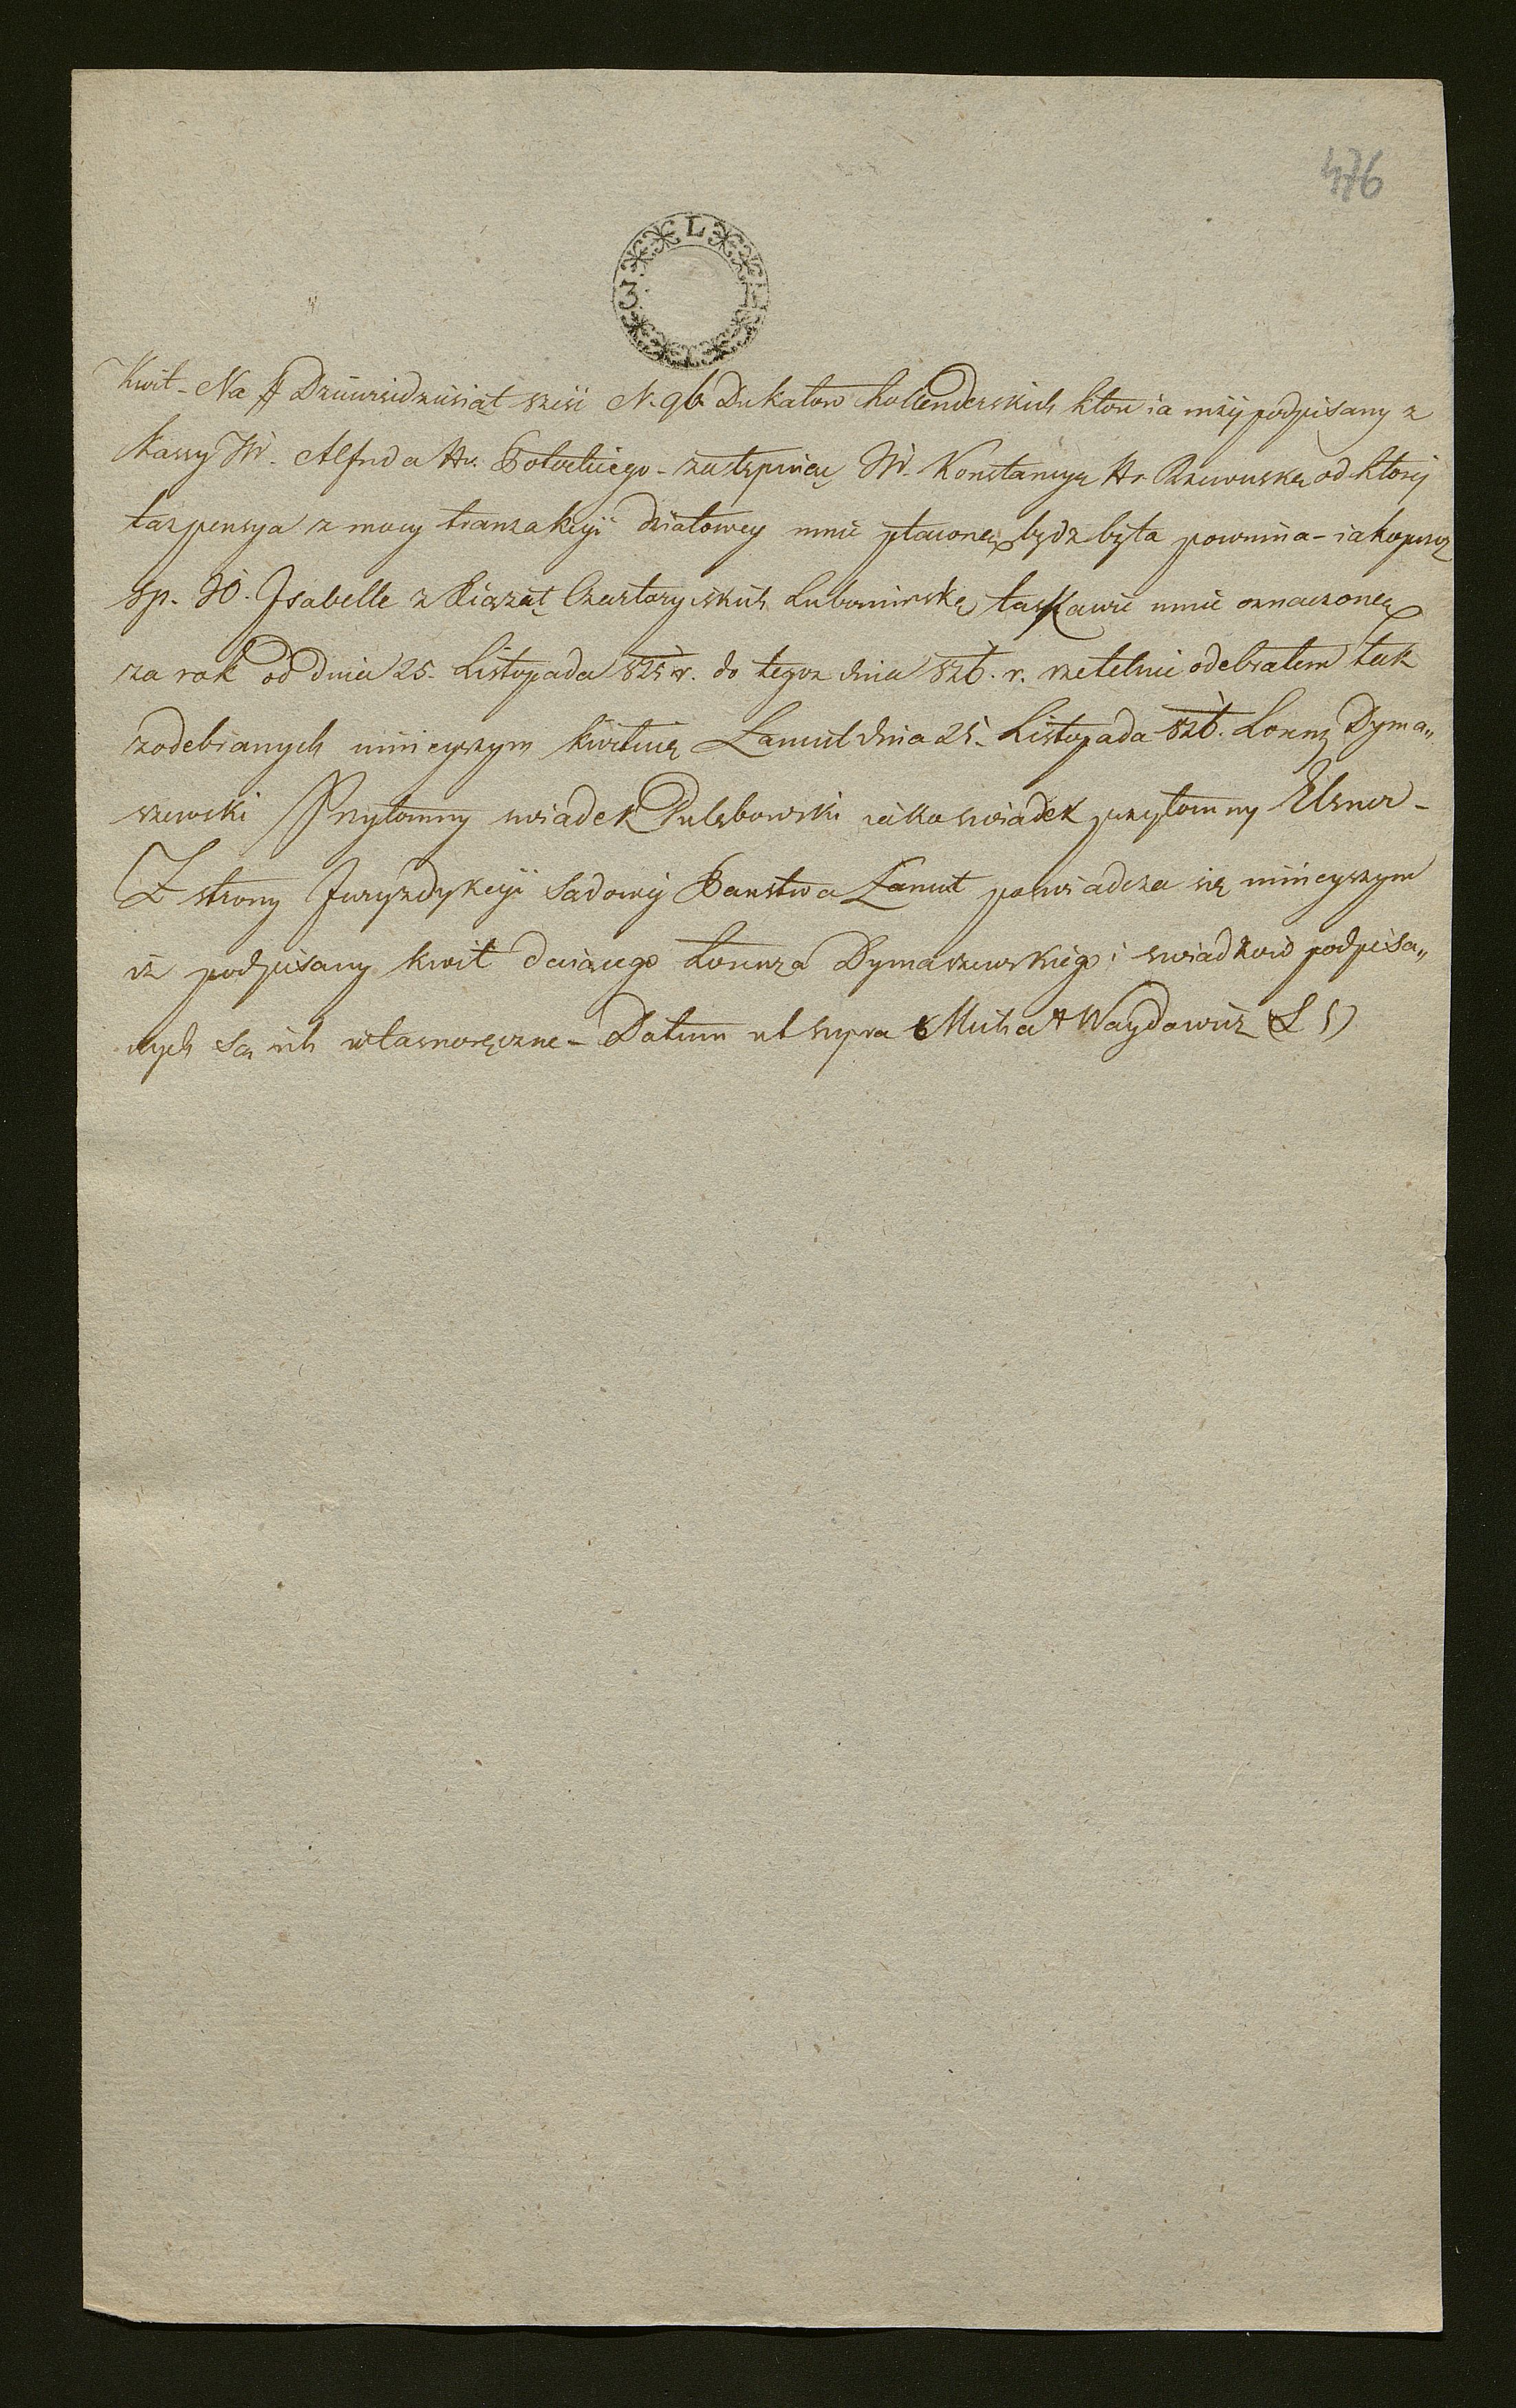 476
3 L K
Kwit - Na # Dziewiędziesiąt sześć N. 96 Dukatow hollenderskich które ia niżej podpisany z
Kassy JW. Alfreda Hr. Potockiego - zastępuiąc JW. Konstancyą Hr Rzewuską od ktorej
taż pensya z mocy tranzakcyi działowey mnie płaconą bydz była powinna - iako przez
śp. JO. Jsabelle z Xiążąt Czartoryiskich Lubomirską łaskawie mnie oznaczoną
za rok od dnia 25. Listopada 825 r. do tegoz dnia 826. r. rzetelnie odebrałem tak
z odebranych ninieyszym kwituię Łancut dnia 25. Listopada 826. Lorenz Dyma„
szewski Przytomny swiadek jako swiadek przytomny Elsner -
Z strony Juryzdykcyi Sądowej Państwa Łancut poswiadcza się ninieyszym
iż podpisany kwit daiącego Lorenza Dymaszewskiego i swiadkow podpisa„
nych są ich własnoręczne - Datum ut supra Michał Waydowicz (L S)